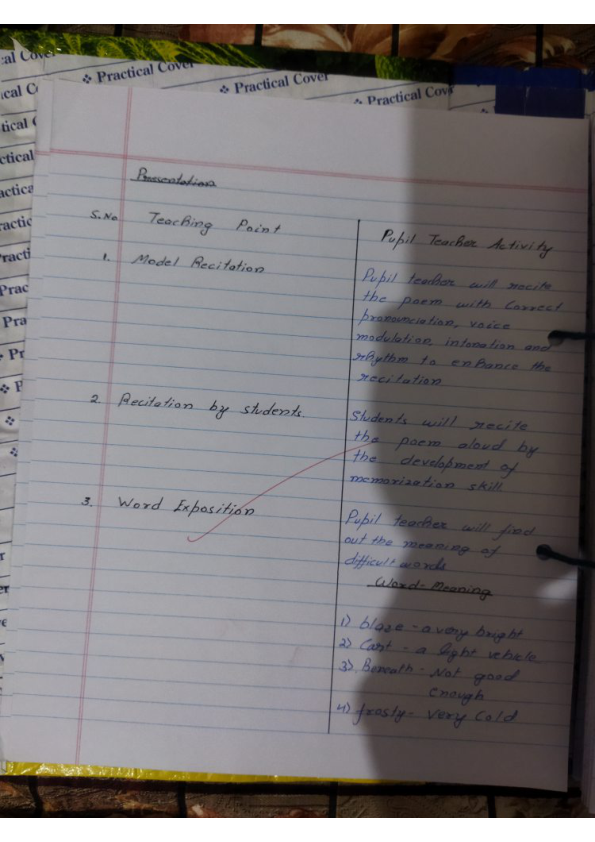 cal Cover
❖ Practical Cover
❖ Practical Cover
❖ Practical Cov
Presentation
S.No Teaching Point
Pupil Teacher Activity
1. Model Recitation
Pupil teacher will recite
the poem with Correct
pronunciation, voice
modulation, intonation and
rhythm to enhance the
recitation
2. Recitation by students.
Students will recite
the poem aloud by
the development of
memorization skill
3. Word Exposition
Pupil teacher will find
out the meaning of
difficult words
Word-Meaning
1) blaze - a very bright
2) Cart - a light vehicle
3) Beneath - Not good
enough
4) frosty - very Cold